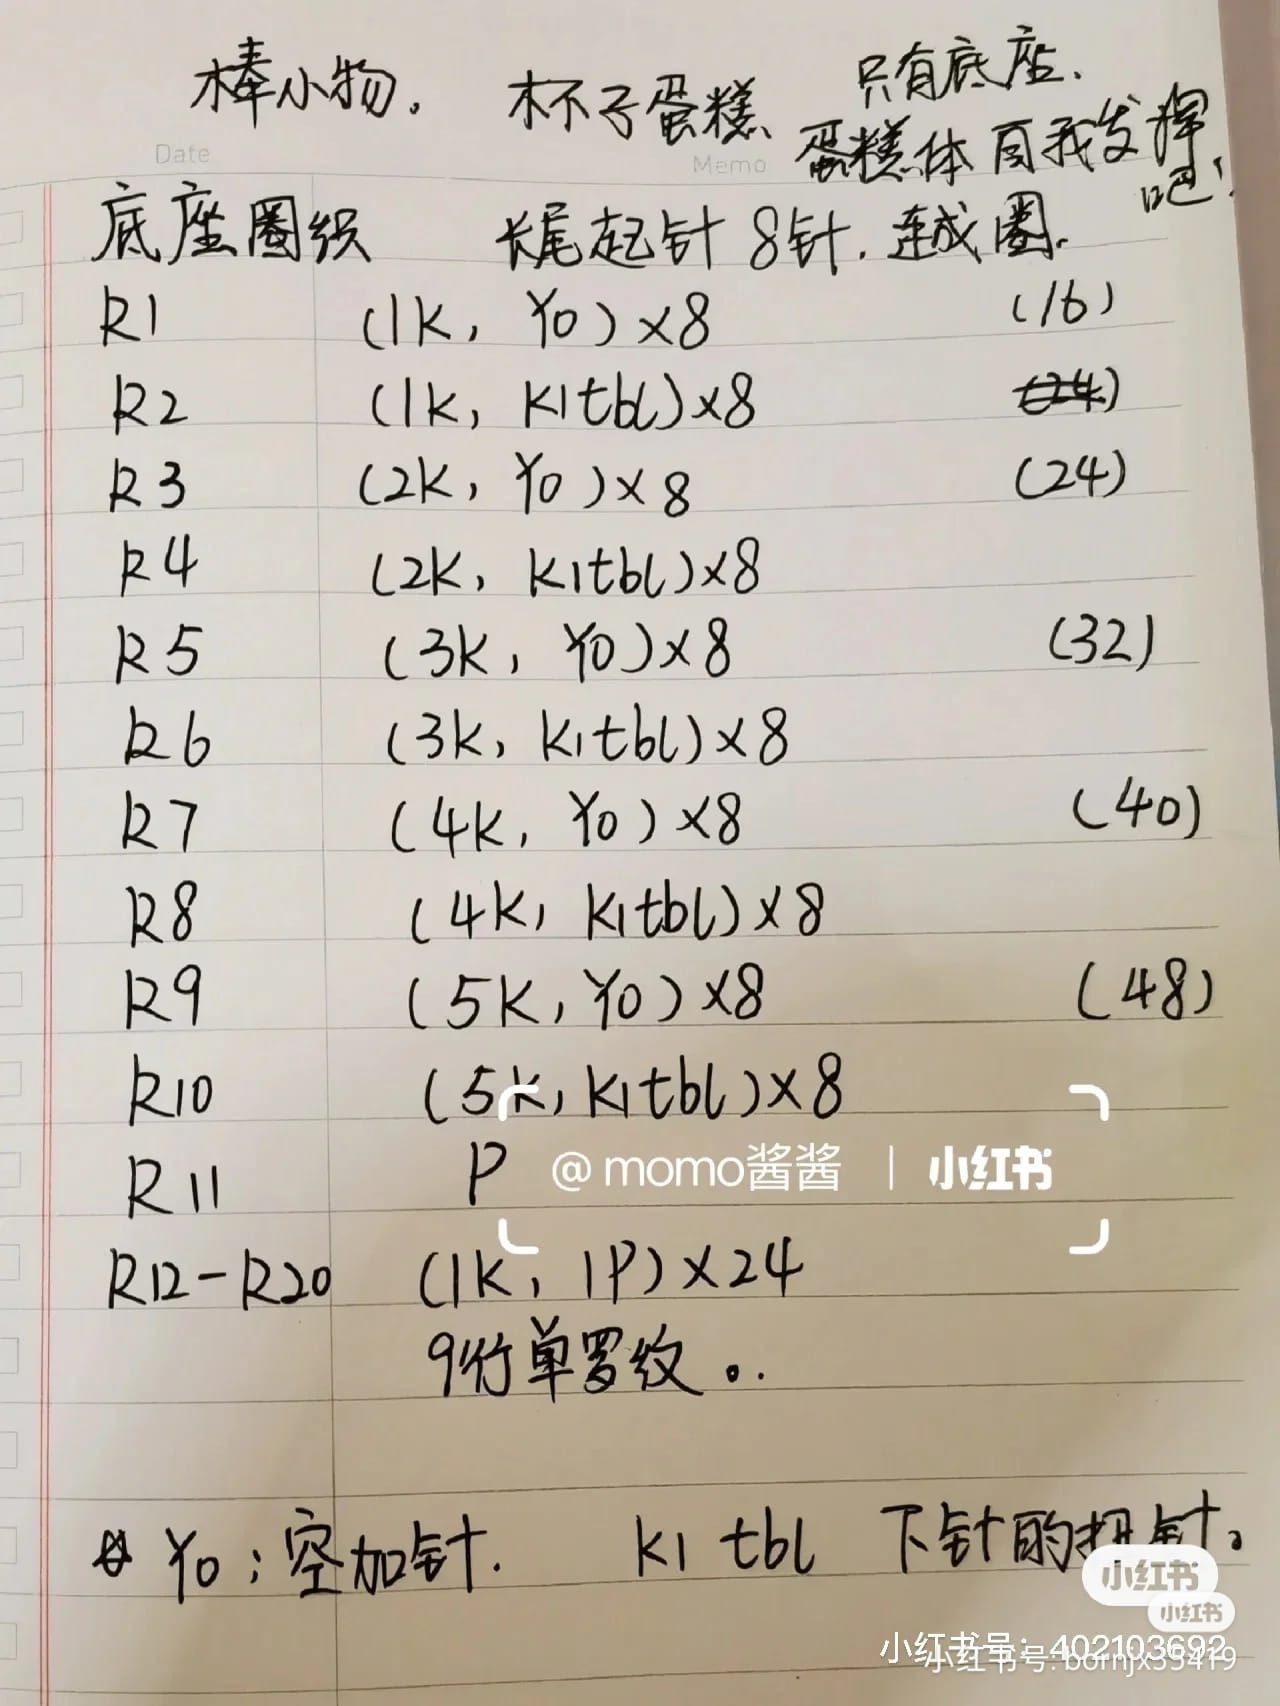 棒小物。 杯子蛋糕 只有底座.
蛋糕体 自我发挥
吧!
Date
Memo
底座圈织 长尾起针 8针. 连成圈.
R1 (1K, Yo)×8 (16)
R2 (1K, K1tbl)×8 (24)
R3 (2K, Yo)×8 (24)
R4 (2K, K1tbl)×8
R5 (3K, Yo)×8 (32)
R6 (3K, K1tbl)×8
R7 (4K, Yo)×8 (40)
R8 (4K, K1tbl)×8
R9 (5K, Yo)×8 (48)
R10 (5K, K1tbl)×8
R11 P
@momo酱酱 | 小红书
R12-R20 (1K, 1P)×24
9行单罗纹。.
Yo: 空加针. K1 tbl 下针的扭针。
小红书
小红书
小红书号: 402103692
小红书号: bornjx35419